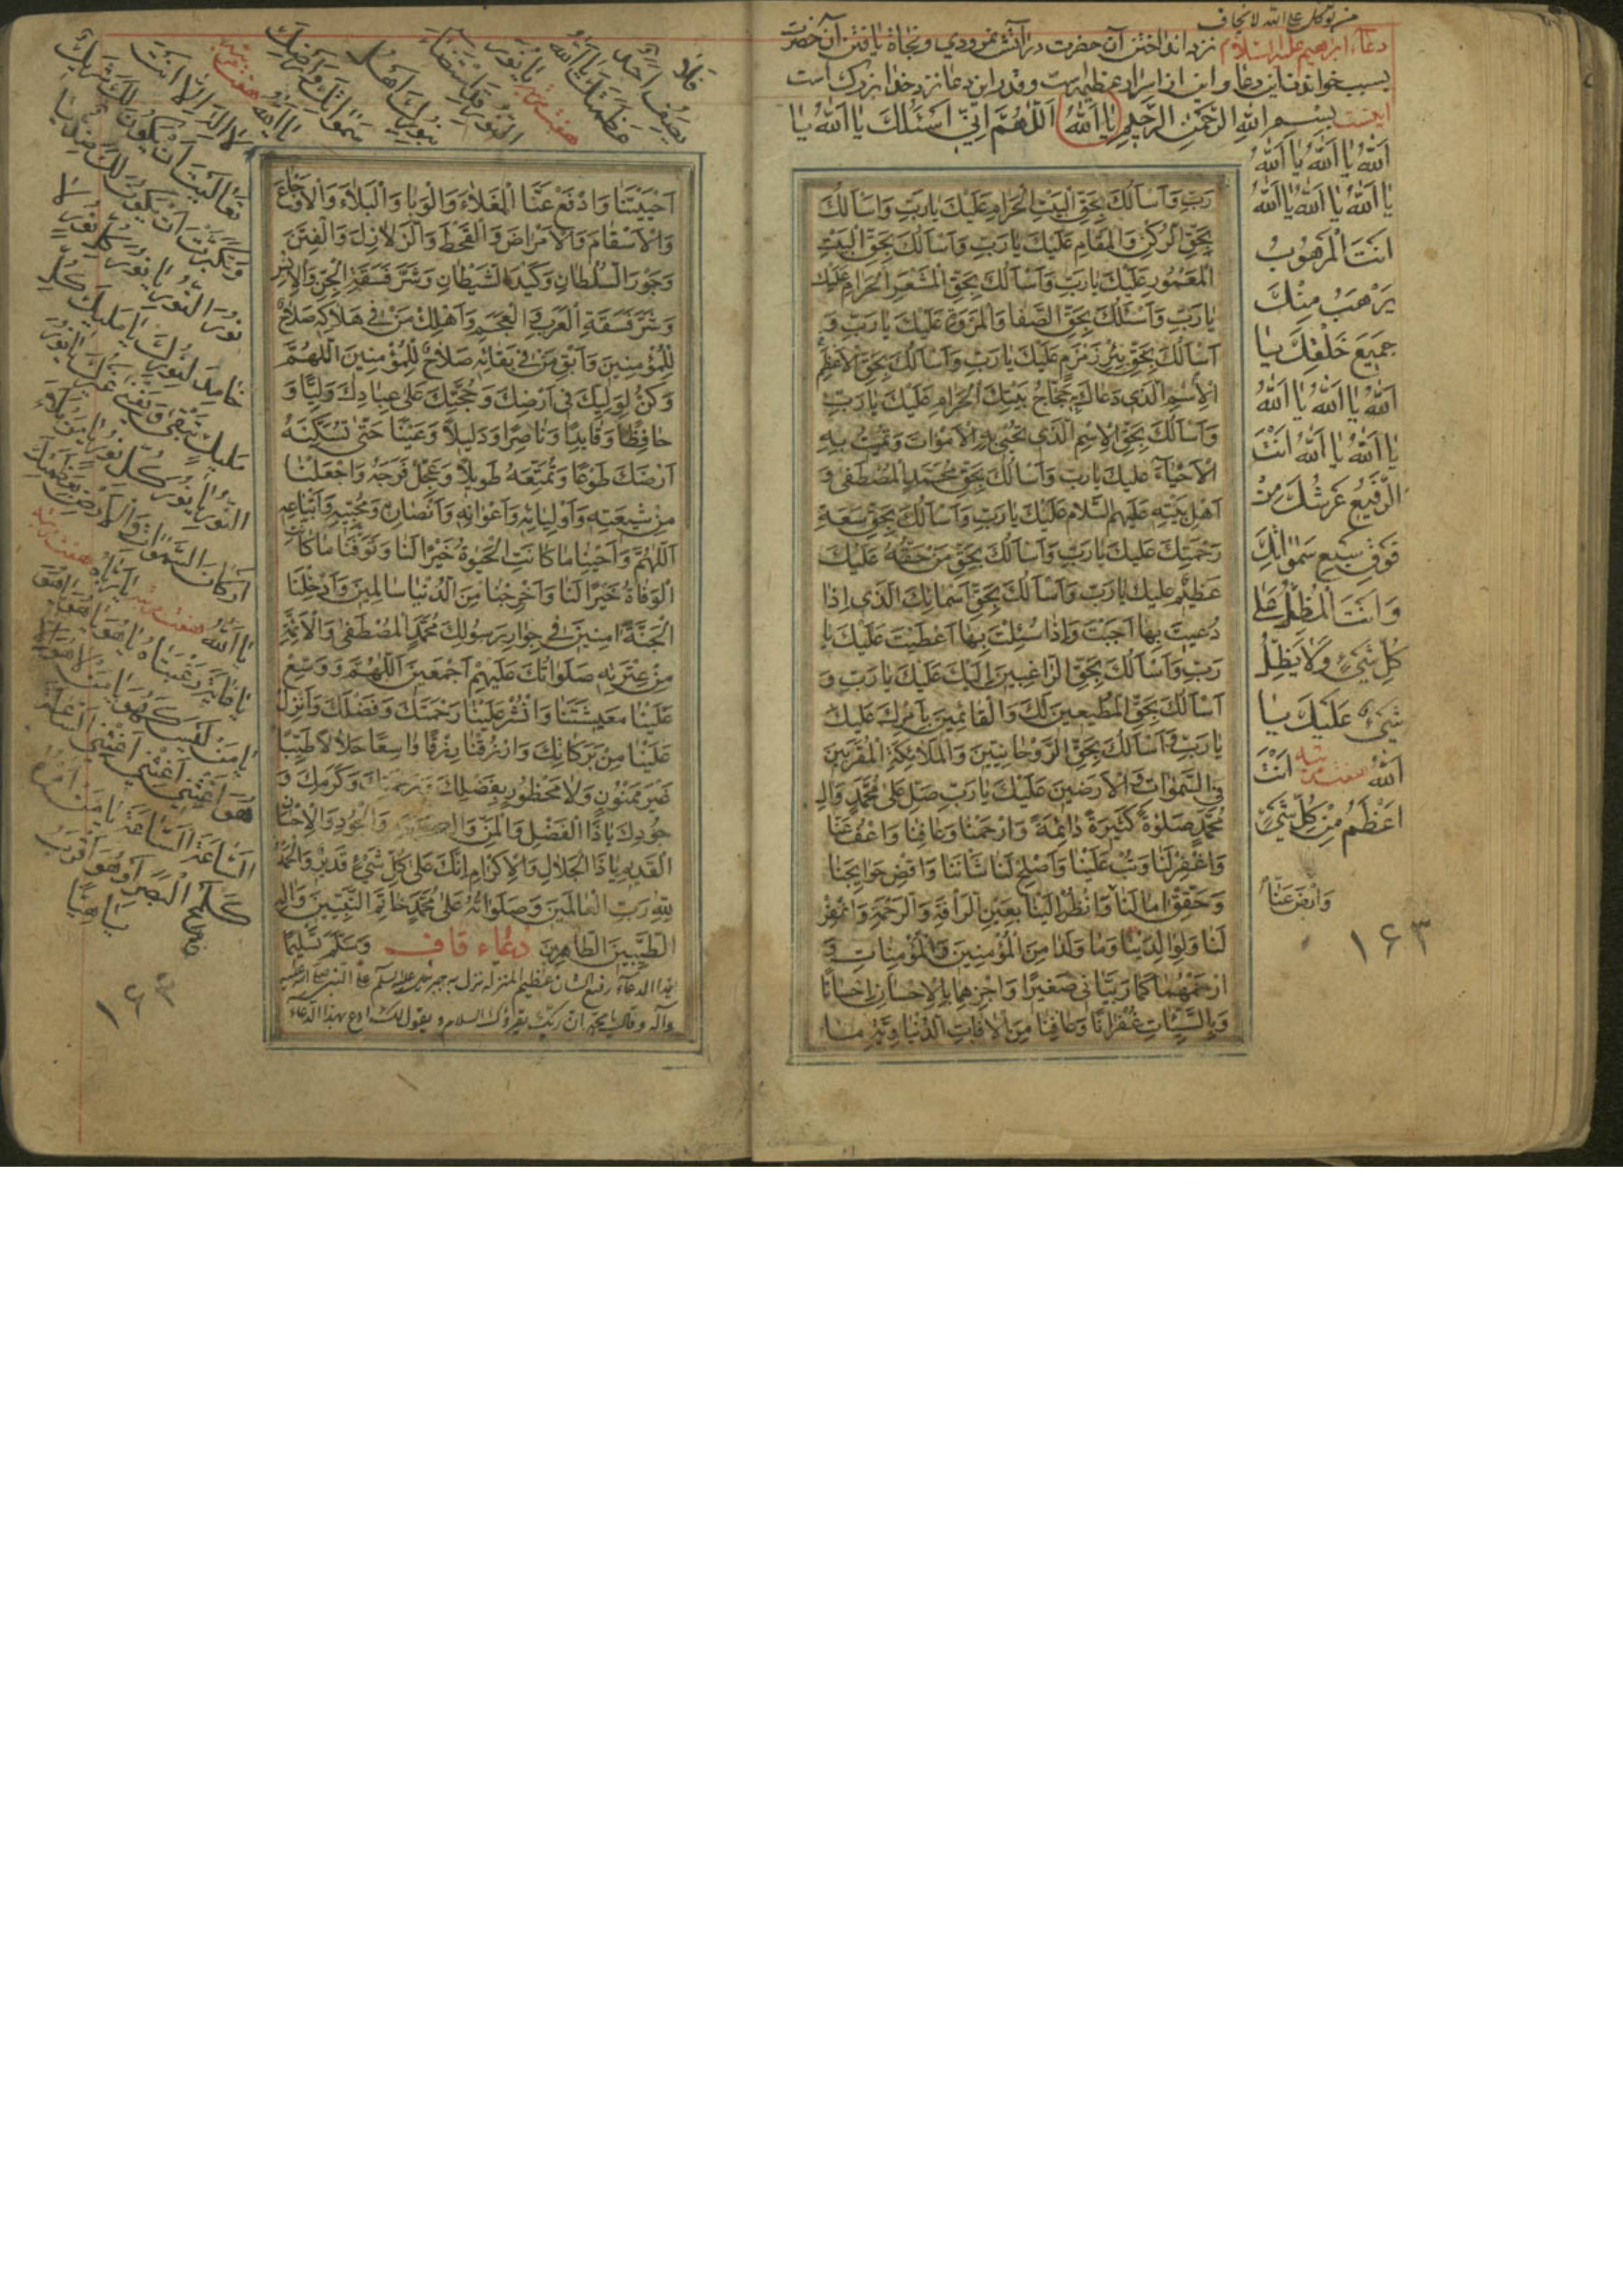 من توكل على الله لا يخاف
دعاء ابراهيم عليه السلام نزد انداختن آن حضرت در آتش نمرودي و نجاة يافتن آن حضرت
بسبب خواندن اين دعا و اين از اسرار عظيمه است و قدر اين دعا نزد خدا بزرك است
اينست بِسْمِ اللهِ الرَّحْمنِ الرَّحِيمِ يٰا اَللهُ اَللّٰهُمَّ اِنّي اَسْئَلُكَ يٰا اَللهُ يٰا
اَللهُ يٰا اَللهُ يٰا اَللهُ
يٰا اَللهُ يٰا اَللهُ يٰا اَللهُ
اَنْتَ الْمَرْهُوبُ
يَرْهَبُ مِنْكَ
جَمِيعُ خَلْقِكَ يٰا
اَللهُ يٰا اَللهُ يٰا اَللهُ
يٰا اَللهُ يٰا اَللهُ اَنْتَ
الرَّفِيعُ عَرْشُكَ مِنْ
فَوْقِ سَبْعِ سَمٰوٰاتِكَ
وَاَنْتَ الْمُظِلُّ عَلٰى
كُلِّ شَيْءٍ وَلاٰ يُظِلُّ
شَيْءٌ عَلَيْكَ يٰا
اَللهُ هفت مرتبه اَنْتَ
اَعْظَمُ مِنْ كُلِّ شَيْءٍ
وَارْضَ عَنّٰا
١٦٣
رَبِّ وَاَسْاَلُكَ بِحَقِّ الْبَيْتِ الْحَرٰامِ عَلَيْكَ يٰا رَبِّ وَاَسْاَلُكَ
بِحَقِّ الرُّكْنِ وَالْمَقٰامِ عَلَيْكَ يٰا رَبِّ وَاَسْاَلُكَ بِحَقِّ الْبَيْتِ
الْمَعْمُورِ عَلَيْكَ يٰا رَبِّ وَاَسْاَلُكَ بِحَقِّ الْمَشْعَرِ الْحَرٰامِ عَلَيْكَ
يٰا رَبِّ وَاَسْئَلُكَ بِحَقِّ الصَّفٰا وَالْمَرْوَةِ عَلَيْكَ يٰا رَبِّ وَ
اَسْاَلُكَ بِحَقِّ بِئْرِ زَمْزَمَ عَلَيْكَ يٰا رَبِّ وَاَسْاَلُكَ بِحَقِّ الْاَعْظَمِ
الْاِسْمِ الَّذي دَعٰاكَ بِهِ حُجّٰاجُ بَيْتِكَ الْحَرٰامِ عَلَيْكَ يٰا رَبِّ
وَاَسْاَلُكَ بِحَقِّ الْاِسْمِ الَّذي تُحْيي بِهِ الْاَمْوٰاتَ وَتُمِيتُ بِهِ
الْاَحْيٰاءَ عَلَيْكَ يٰا رَبِّ وَاَسْاَلُكَ بِحَقِّ مُحَمَّدٍ الْمُصْطَفٰى وَ
اَهْلِ بَيْتِهِ عَلَيْهِمُ السَّلاٰمُ عَلَيْكَ يٰا رَبِّ وَاَسْاَلُكَ بِحَقِّ سَعَةِ
رَحْمَتِكَ عَلَيْكَ يٰا رَبِّ وَاَسْاَلُكَ بِحَقِّ مَنْ حَقُّهُ عَلَيْكَ
عَظِيمٌ عَلَيْكَ يٰا رَبِّ وَاَسْاَلُكَ بِحَقِّ اَسْمٰائِكَ الَّذي اِذٰا
دُعِيتَ بِهٰا اَجَبْتَ وَاِذٰا سُئِلْتَ بِهٰا اَعْطَيْتَ عَلَيْكَ يٰا
رَبِّ وَاَسْاَلُكَ بِحَقِّ الرّٰاغِبِينَ اِلَيْكَ عَلَيْكَ يٰا رَبِّ وَ
اَسْاَلُكَ بِحَقِّ الْمُطِيعِينَ لَكَ وَالْقٰائِمِينَ بِاَمْرِكَ عَلَيْكَ
يٰا رَبِّ وَاَسْاَلُكَ بِحَقِّ الرَّوْحٰانِيّينَ وَالْمَلاٰئِكَةِ الْمُقَرَّبِينَ
فِي السَّمٰوٰاتِ وَالْاَرَضِينَ عَلَيْكَ يٰا رَبِّ صَلِّ عَلٰى مُحَمَّدٍ وَاٰلِ
مُحَمَّدٍ صَلٰوةً كَثِيرَةً دٰائِمَةً وَارْحَمْنٰا وَعٰافِنٰا وَاعْفُ عَنّٰا
وَاغْفِرْ لَنٰا وَتُبْ عَلَيْنٰا وَاَصْلِحْ لَنٰا شَاْنَنٰا وَاقْضِ حَوٰايِجَنٰا
وَحَقِّقْ اٰمٰالَنٰا وَانْظُرْ اِلَيْنٰا بِعَيْنِ الرَّأْفَةِ وَالرَّحْمَةِ وَاغْفِرْ
لَنٰا وَلِوٰالِدَيْنٰا وَمٰا وَلَدٰا مِنَ الْمُؤْمِنِينَ وَالْمُؤْمِنٰاتِ وَ
ارْحَمْهُمٰا كَمٰا رَبَّيٰاني صَغِيرًا وَاجْزِهِمٰا بِالْاِحْسٰانِ اِحْسٰانًا
وَبِالسَّيِّئٰاتِ غُفْرٰانًا وَعٰافِنٰا مِنْ اٰفٰاتِ الدُّنْيٰا مٰا
اَحْيَيْتَنٰا وَادْفَعْ عَنَّا الْغَلاٰءَ وَالْوَبٰا وَالْبَلاٰءَ وَالْاَوْجٰاعَ
وَالْاَسْقٰامَ وَالْاَمْرٰاضَ وَالْقَحْطَ وَالزَّلاٰزِلَ وَالْفِتَنَ
وَجَوْرَ السُّلْطٰانِ وَكَيْدَ الشَّيْطٰانِ وَشَرَّ فَسَقَةِ الْجِنِّ وَالْاِنْسِ
وَشَرَّ فَسَقَةِ الْعَرَبِ وَالْعَجَمِ وَاَهْلِكْ مَنْ في هَلاٰكِهِ صَلاٰحٌ
لِلْمُؤْمِنِينَ وَاَبْقِ مَنْ في بَقٰائِهِ صَلاٰحٌ لِلْمُؤْمِنِينَ اَللّٰهُمَّ
وَكُنْ لِوَلِيِّكَ في اَرْضِكَ وَحُجَّتِكَ عَلٰى عِبٰادِكَ وَلِيًّا وَ
حٰافِظًا وَقٰايِدًا وَنٰاصِرًا وَدَلِيلاً وَعَيْنًا حَتّٰى تُسْكِنَهُ
اَرْضَكَ طَوْعًا وَتُمَتِّعَهُ طَوِيلاً وَعَجِّلْ فَرَجَهُ وَاجْعَلْنٰا
مِنْ شِيعَتِهِ وَاَوْلِيٰائِهِ وَاَعْوٰانِهِ وَاَنْصٰارِهِ وَمُحِبِّيهِ وَاَتْبٰاعِهِ
اَللّٰهُمَّ وَاَحْيِنٰا مٰا كٰانَتِ الْحَيٰوةُ خَيْرًا لَنٰا وَتَوَفَّنٰا مٰا كٰانَتِ
الْوَفٰاةُ خَيْرًا لَنٰا وَاَخْرِجْنٰا مِنَ الدُّنْيٰا سٰالِمِينَ وَاَدْخِلْنَا
الْجَنَّةَ اٰمِنِينَ في جِوٰارِ رَسُولِكَ مُحَمَّدٍ الْمُصْطَفٰى وَالْاَئِمَّةِ
مِنْ عِتْرَتِهِ صَلَوٰاتُكَ عَلَيْهِمْ اَجْمَعِينَ اَللّٰهُمَّ وَوَسِّعْ
عَلَيْنٰا مَعِيشَتَنٰا وَانْشُرْ عَلَيْنٰا رَحْمَتَكَ وَفَضْلَكَ وَاَنْزِلْ
عَلَيْنٰا مِنْ بَرَكٰاتِكَ وَارْزُقْنٰا رِزْقًا وٰاسِعًا حَلاٰلاً طَيِّبًا
غَيْرَ مَمْنُونٍ وَلاٰ مَحْظُورٍ بِفَضْلِكَ وَكَرَمِكَ وَ
جُودِكَ يٰا ذَا الْفَضْلِ وَالْمَنِّ وَالْجُودِ وَالْاِحْسٰانِ
الْقَدِيمِ يٰا ذَا الْجَلاٰلِ وَالْاِكْرٰامِ اِنَّكَ عَلٰى كُلِّ شَيْءٍ قَدِيرٌ وَالْحَمْدُ
لِلّٰهِ رَبِّ الْعٰالَمِينَ وَصَلَوٰاتُهُ عَلٰى مُحَمَّدٍ خٰاتَمِ النَّبِيّينَ وَاٰلِهِ
الطَّيِّبِينَ الطّٰاهِرِينَ وَسَلَّمَ تَسْلِيمًا دعاء قاف
هذا الدعاء رفيع الشان عظيم المنزلة نزل به جبرئيل عليه السلام على النبي صلى الله عليه
وآله وقال يا محمد ان ربك يقرؤك السلام ويقول لك ادع بهذا الدعاء
يَصِفُ اَحَدٌ
عَظَمَتَكَ يٰا اَللهُ
هفت مرتبه يٰا نُورَ
النُّورِ قَدِ اسْتَضٰاءَ
بِنُورِكَ اَهْلُ
سَمٰوٰاتِكَ وَاَرْضِكَ
يٰا اَللهُ هفت مرتبه
لاٰ اِلٰهَ اِلاّٰ اَنْتَ
تَعٰالَيْتَ اَنْ يَكُونَ لَكَ شَرِيكٌ
وَتَكَبَّرْتَ اَنْ يَكُونَ لَكَ ضِدٌّ يٰا
نُورَ النُّورِ يٰا نُورَ كُلِّ نُورٍ لاٰ
خٰامِدَ لِنُورِكَ يٰا مَلِيكَ كُلِّ
مَلِيكٍ تَبْقٰى وَيَفْنٰى غَيْرُكَ يٰا نُورَ
النُّورِ يٰا نُورَ كُلِّ نُورٍ يٰا مَنْ مَلَأَ
اَرْكٰانَ السَّمٰوٰاتِ وَالْاَرْضِ بِعَظَمَتِهِ
يٰا اَللهُ هفت مرتبه
يٰا هُوَ يٰا هُوَ
يٰا مَنْ لَيْسَ كَهُوَ يٰا مَنْ لاٰ هُوَ اِلاّٰ
هُوَ اَغِثْني اَغِثْني اَغِثْني السّٰاعَةَ
السّٰاعَةَ السّٰاعَةَ يٰا مَنْ اَمْرُهُ
كَلَمْحِ الْبَصَرِ اَوْ هُوَ اَقْرَبُ
١٦٣